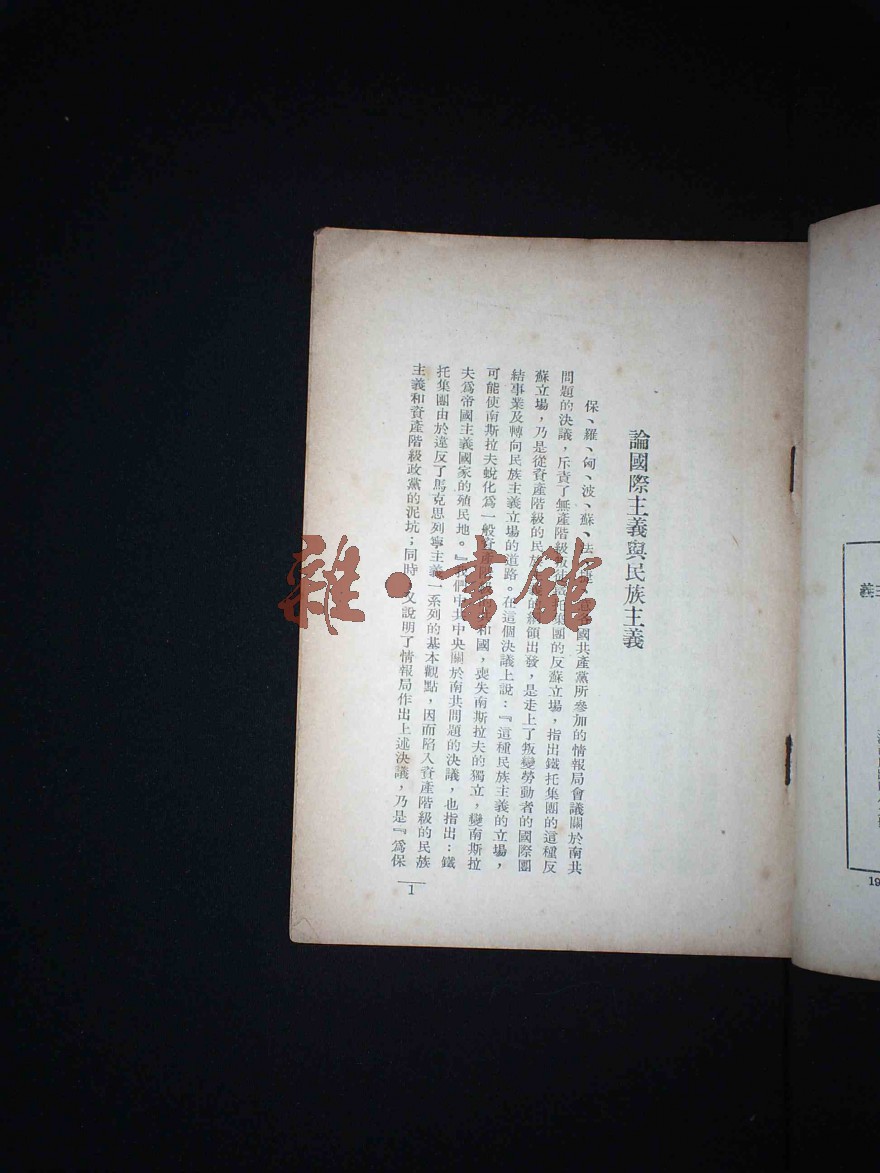 論國際主義與民族主義
保、羅、匈、波、蘇、法 各國共產黨所參加的情報局會議關於南共
問題的決議，斥責了無產階級 集團的反蘇立場，指出鐵托集團的這種反
蘇立場，乃是從資產階級的民族 的綱領出發，是走上了叛變勞動者的國際團
結事業及轉向民族主義立場的道路。在這個決議上說：『這種民族主義的立場，
可能使南斯拉夫蛻化爲一般資產階 和國，喪失南斯拉夫的獨立，變南斯拉
夫爲帝國主義國家的殖民地。』我們中共中央關於南共問題的決議，也指出：鐵
托集團由於違反了馬克思列寧主義一系列的基本觀點，因而陷入資產階級的民族
主義和資產階級政黨的泥坑；同時 又說明了情報局作出上述決議，乃是『爲保
1
雜·書館
主義
19